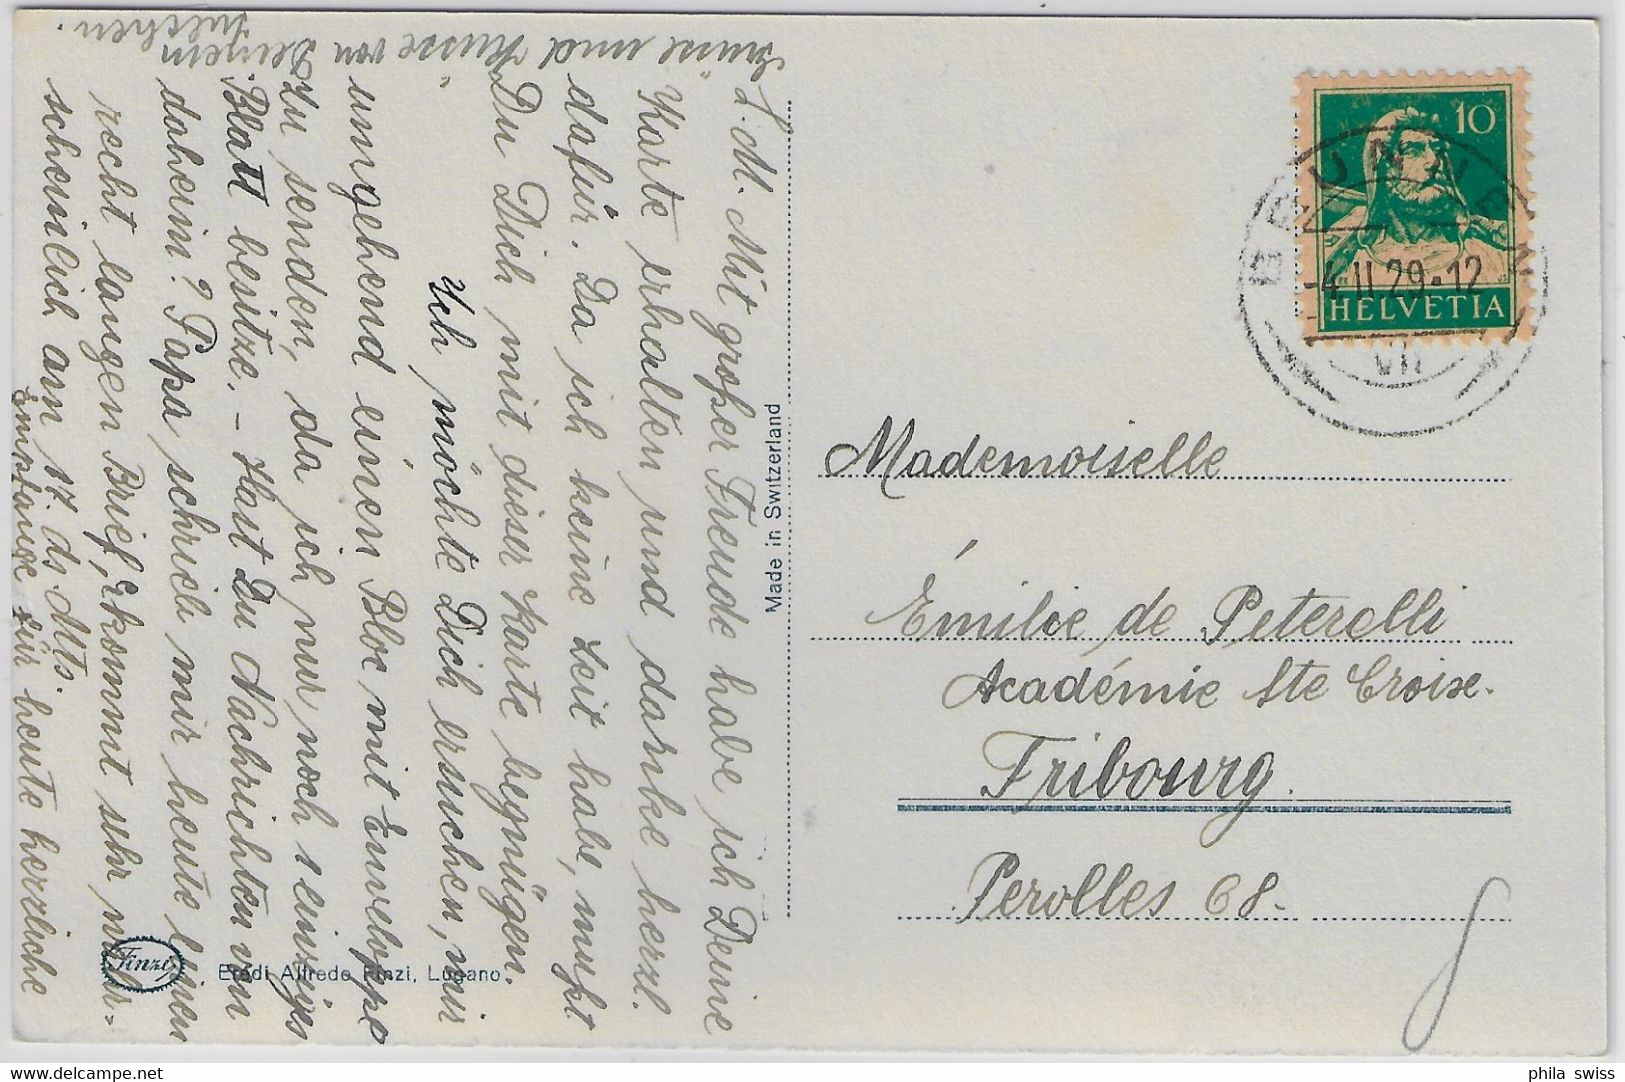 L. M. Mit großer Freude habe ich Deine
Karte erhalten und danke herzl.
dafür. Da ich keine Zeit habe, mußt
Du Dich mit dieser Karte begnügen.
Ich möchte Dich ersuchen, mir
umgehend einen Bloc mit Enveloppe
zu senden, da ich nur noch 1 einziges
Blatt besitze. - Hast Du Nachrichten von
daheim? Papa schrieb mir heute einen
recht langen Brief, kommt sehr wahr-
scheinlich am 17. ds. Mts.
Empfange für heute herzliche
Grüsse und Küsse von Deinem
Julchen.
Made in Switzerland
Finzi
Eredi Alfredo Finzi, Lugano.
10
HELVETIA
BRUNNEN
-4.II.29.-12
VII
Mademoiselle
Émilie de Peterelli
Académie Ste Croix.
Fribourg.
Perolles 68.
phila swiss